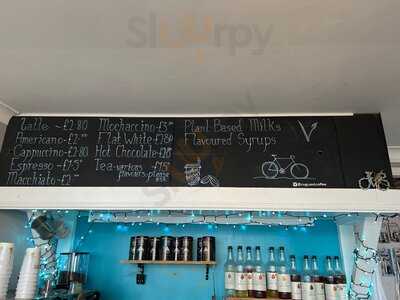 Slurrpy
Latte - £2.80
Americano - £2
Cappuccino - £2.80
Espresso - £1.5
Macchiato £2
Mochaccino - £3
Flat White - £2.80
Hot Chocolate - £2.8
Tea - various £1.5
flavours-please
Plant Based Milks V
Flavoured Syrups